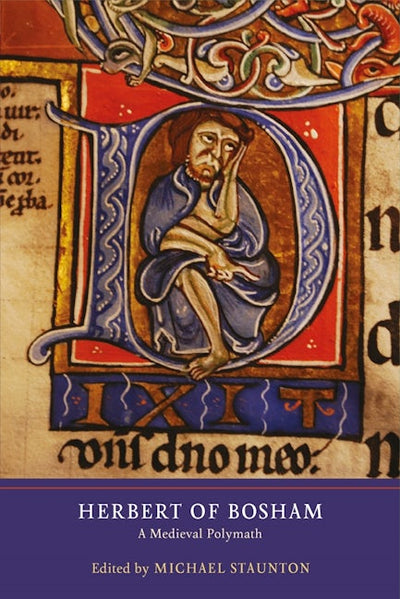 D
IXIT
dns dno meo:
HERBERT OF BOSHAM
A Medieval Polymath
Edited by MICHAEL STAUNTON